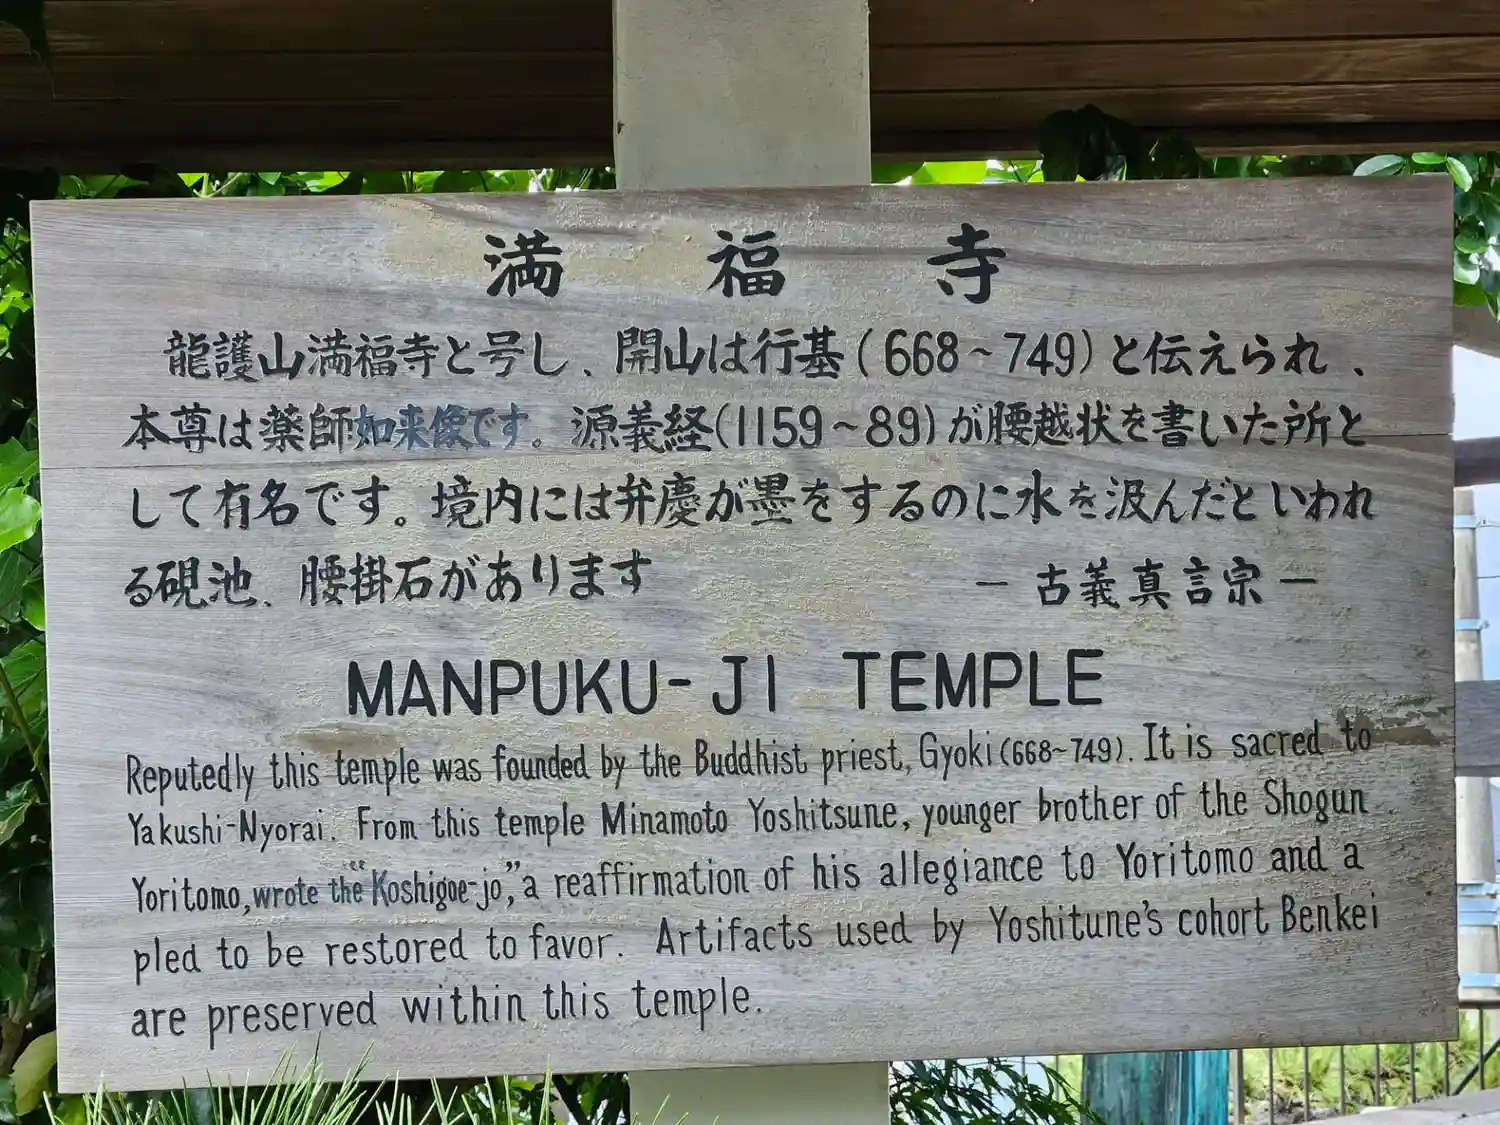 満福寺
龍護山満福寺と号し、開山は行基(668~749)と伝えられ、
本尊は薬師如来像です。源義経(1159~89)が腰越状を書いた所と
して有名です。境内には弁慶が墨をするのに水を汲んだといわれ
る硯池、腰掛石があります
ー古義真言宗ー
MANPUKU-JI TEMPLE
Reputedly this temple was founded by the Buddhist priest, Gyoki (668~749). It is sacred to
Yakushi-Nyorai. From this temple Minamoto Yoshitsune, younger brother of the Shogun
Yoritomo, wrote the “Koshigoe-jo,” a reaffirmation of his allegiance to Yoritomo and a
pled to be restored to favor. Artifacts used by Yoshitune's cohort Benkei
are preserved within this temple.